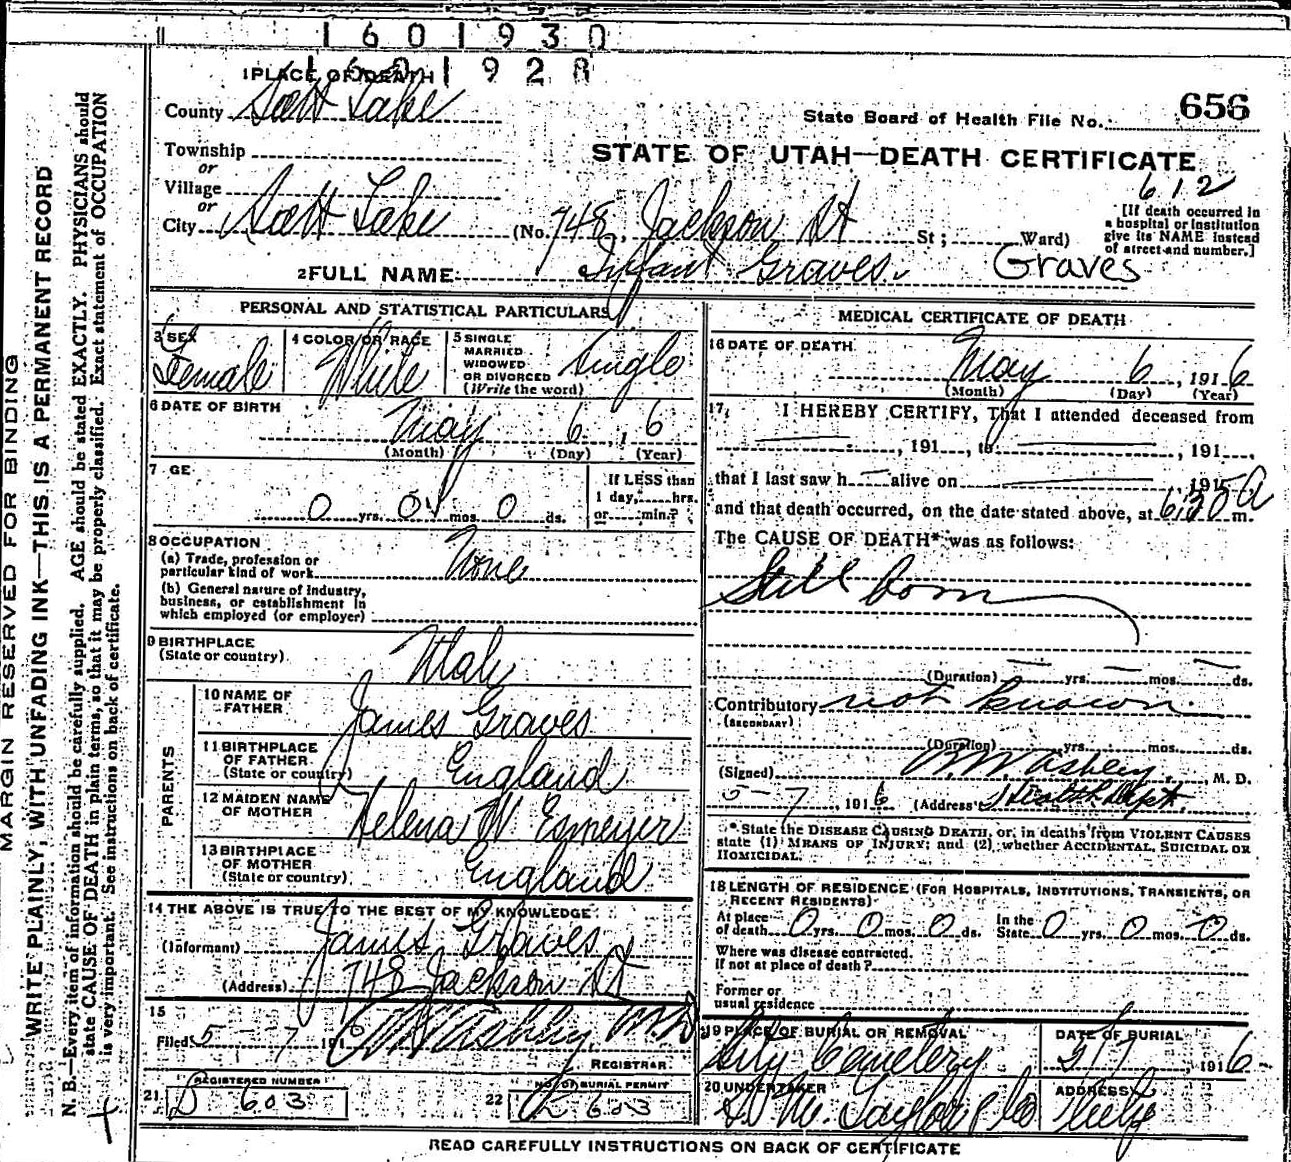 1601930
1601928
1 PLACE OF DEATH
County Salt Lake
State Board of Health File No. 656
Township
or
Village
or
City Salt Lake
STATE OF UTAH—DEATH CERTIFICATE
612
(No. 748, Jackson St St; Ward)
[If death occurred in
a hospital or institution
give its NAME instead
of street and number.]
2 FULL NAME Infant Graves. Graves
PERSONAL AND STATISTICAL PARTICULARS
3 SEX
Female
4 COLOR OR RACE
White
5 SINGLE
MARRIED
WIDOWED
OR DIVORCED
(Write the word)
Single
6 DATE OF BIRTH
May 6, 16
(Month) (Day) (Year)
7 GE
0 yrs. 0 mos. 0 ds.
If LESS than
1 day, hrs.
or min.?
8 OCCUPATION
(a) Trade, profession or
particular kind of work None
(b) General nature of industry,
business, or establishment in
which employed (or employer)
9 BIRTHPLACE
(State or country)
Utah
PARENTS
10 NAME OF
FATHER
James Graves
11 BIRTHPLACE
OF FATHER
(State or country)
England
12 MAIDEN NAME
OF MOTHER
Helena W Esmeyer
13 BIRTHPLACE
OF MOTHER
(State or country)
England
14 THE ABOVE IS TRUE TO THE BEST OF MY KNOWLEDGE
(Informant) James Graves
(Address) 748 Jackson St
15
Filed 5-7 191 Ashby, M.D.
REGISTRAR
21 REGISTERED NUMBER
603
22 NO. OF BURIAL PERMIT
603
MEDICAL CERTIFICATE OF DEATH
16 DATE OF DEATH
May 6, 1916
(Month) (Day) (Year)
17, I HEREBY CERTIFY, That I attended deceased from
, 191 , to , 191
that I last saw h alive on 191
and that death occurred, on the date stated above, at 6:30 A m.
The CAUSE OF DEATH* was as follows:
Still born
(Duration) yrs. mos. ds.
Contributory not known.
(SECONDARY)
(Duration) yrs. mos. ds.
(Signed) Ashby, M. D.
5-7, 1916 (Address) Health Dept.
* State the DISEASE CAUSING DEATH, or, in deaths from VIOLENT CAUSES
state (1) MEANS OF INJURY; and (2) whether ACCIDENTAL, SUICIDAL OR
HOMICIDAL.
18 LENGTH OF RESIDENCE (FOR HOSPITALS, INSTITUTIONS, TRANSIENTS, OR
RECENT RESIDENTS)
At place
of death 0 yrs. 0 mos. 0 ds.
In the
State 0 yrs. 0 mos. 0 ds.
Where was disease contracted,
If not at place of death?
Former or
usual residence
19 PLACE OF BURIAL OR REMOVAL
City Cemetery
DATE OF BURIAL
5/7, 1916
20 UNDERTAKER
Taylor & Co
ADDRESS
City
READ CAREFULLY INSTRUCTIONS ON BACK OF CERTIFICATE
MARGIN RESERVED FOR BINDING
WRITE PLAINLY, WITH UNFADING INK—THIS IS A PERMANENT RECORD
N. B.—Every item of information should be carefully supplied. AGE should be stated EXACTLY. PHYSICIANS should
state CAUSE OF DEATH in plain terms, so that it may be properly classified. Exact statement of OCCUPATION
is very important. See instructions on back of certificate.